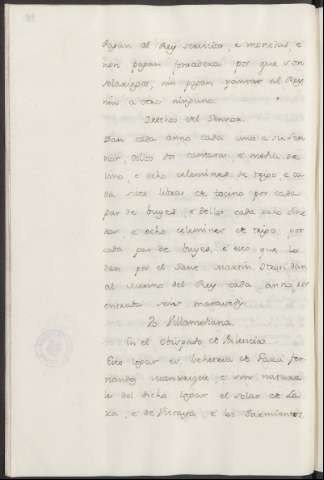 Pagan al Rey servicios, e monedas, e
non pagan fonsadera por que son
solariegos, nin pagan yantar al Rey,
nin a otro ninguno.
Derechos del Sennor.
Dan cada anno cada uno a su Sen
nor, dellos dos cantaras, e media de
vino, e ocho celemines de trigo, e ca
da siete libras de tocino por cada
par de bueyes, e dellos cada
e ocho celemines de trigo, por
cada par de bueyes, e esto que lo
dan por el Sant Martin. Otrosi dan
al Merino del Rey cada anno por
entrada seis maravedis.
Villamediana.
En el Obispado de Palencia.
Este logar es behetria de Lara Fer
nandez Manrique e son natura
les del dicho logar el solar de La
ra, e de Vizcaya, e los Sarmientos,